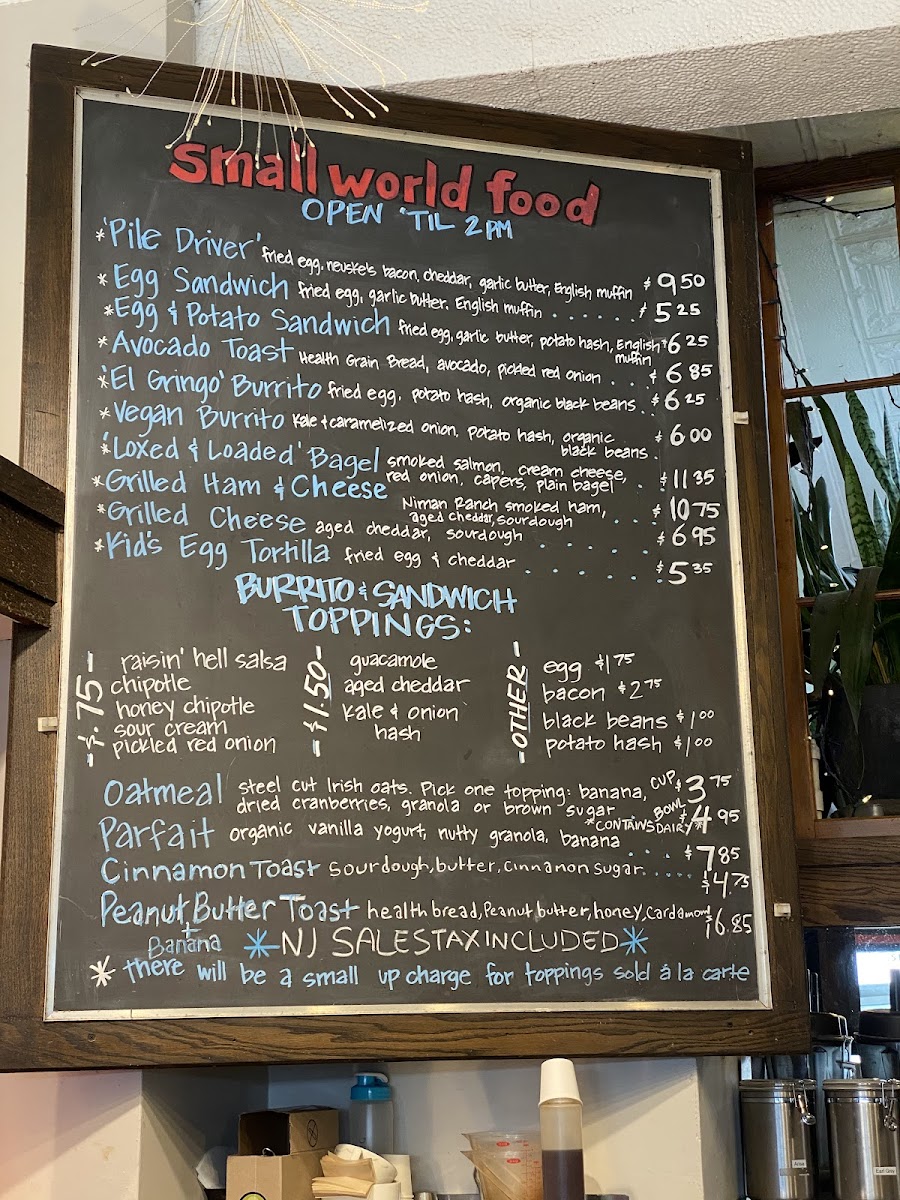 small world food
OPEN 'TIL 2 PM
*'Pile Driver' fried egg, neuske's bacon, cheddar, garlic butter, English muffin $9.50
*Egg Sandwich fried egg, garlic butter. English muffin . . . . . . . $5 25
*Egg & Potato Sandwich fried egg, garlic butter, potato hash, English $6 25
muffin
*Avocado Toast Health Grain Bread, avocado, pickled red onion . . . $6 85
*'El Gringo' Burrito fried egg, potato hash, organic black beans . . $6 25
*Vegan Burrito Kale & caramelized onion, potato hash, organic $6 00
black beans .
*'Loxed & Loaded' Bagel smoked salmon, cream cheese,
red onion, capers, plain bagel . . $11 35
*Grilled Ham & Cheese Niman Ranch smoked ham,
aged cheddar, sourdough . . . $10 75
*Grilled Cheese aged cheddar, sourdough . . . . $6 95
*Kid's Egg Tortilla fried egg & cheddar . . . . . . . $5 35
BURRITO & SANDWICH
TOPPINGS:
-$.75-
raisin' hell salsa
chipotle
honey chipotle
sour cream
pickled red onion
-$1.50-
guacamole
aged cheddar
kale & onion
hash
-OTHER-
egg $1 75
bacon $2 75
black beans $1 00
potato hash $1 00
Oatmeal steel cut Irish oats. Pick one topping: banana, CUP $3 75
dried cranberries, granola or brown sugar BOWL $4 95
*CONTAINS DAIRY*
Parfait organic vanilla yogurt, nutty granola, banana . . . . $7 85
Cinnamon Toast Sourdough, butter, cinnamon sugar . . . . . $4.75
Peanut Butter Toast health bread, Peanut butter, honey, Cardamom $6.85
+
Banana
*NJ SALES TAX INCLUDED*
* there will be a small up charge for toppings sold à la carte
Earl Grey